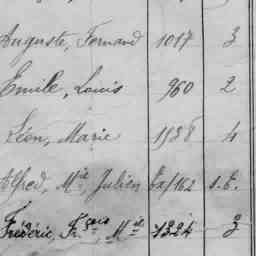 Auguste, Fernand 1017 3
Emile, Louis 960 2
Léon, Marie 1188 4
Alfred, Mie, Julien Ex/162 s.E.
Frédéric, Fçois, Mie 1324 3